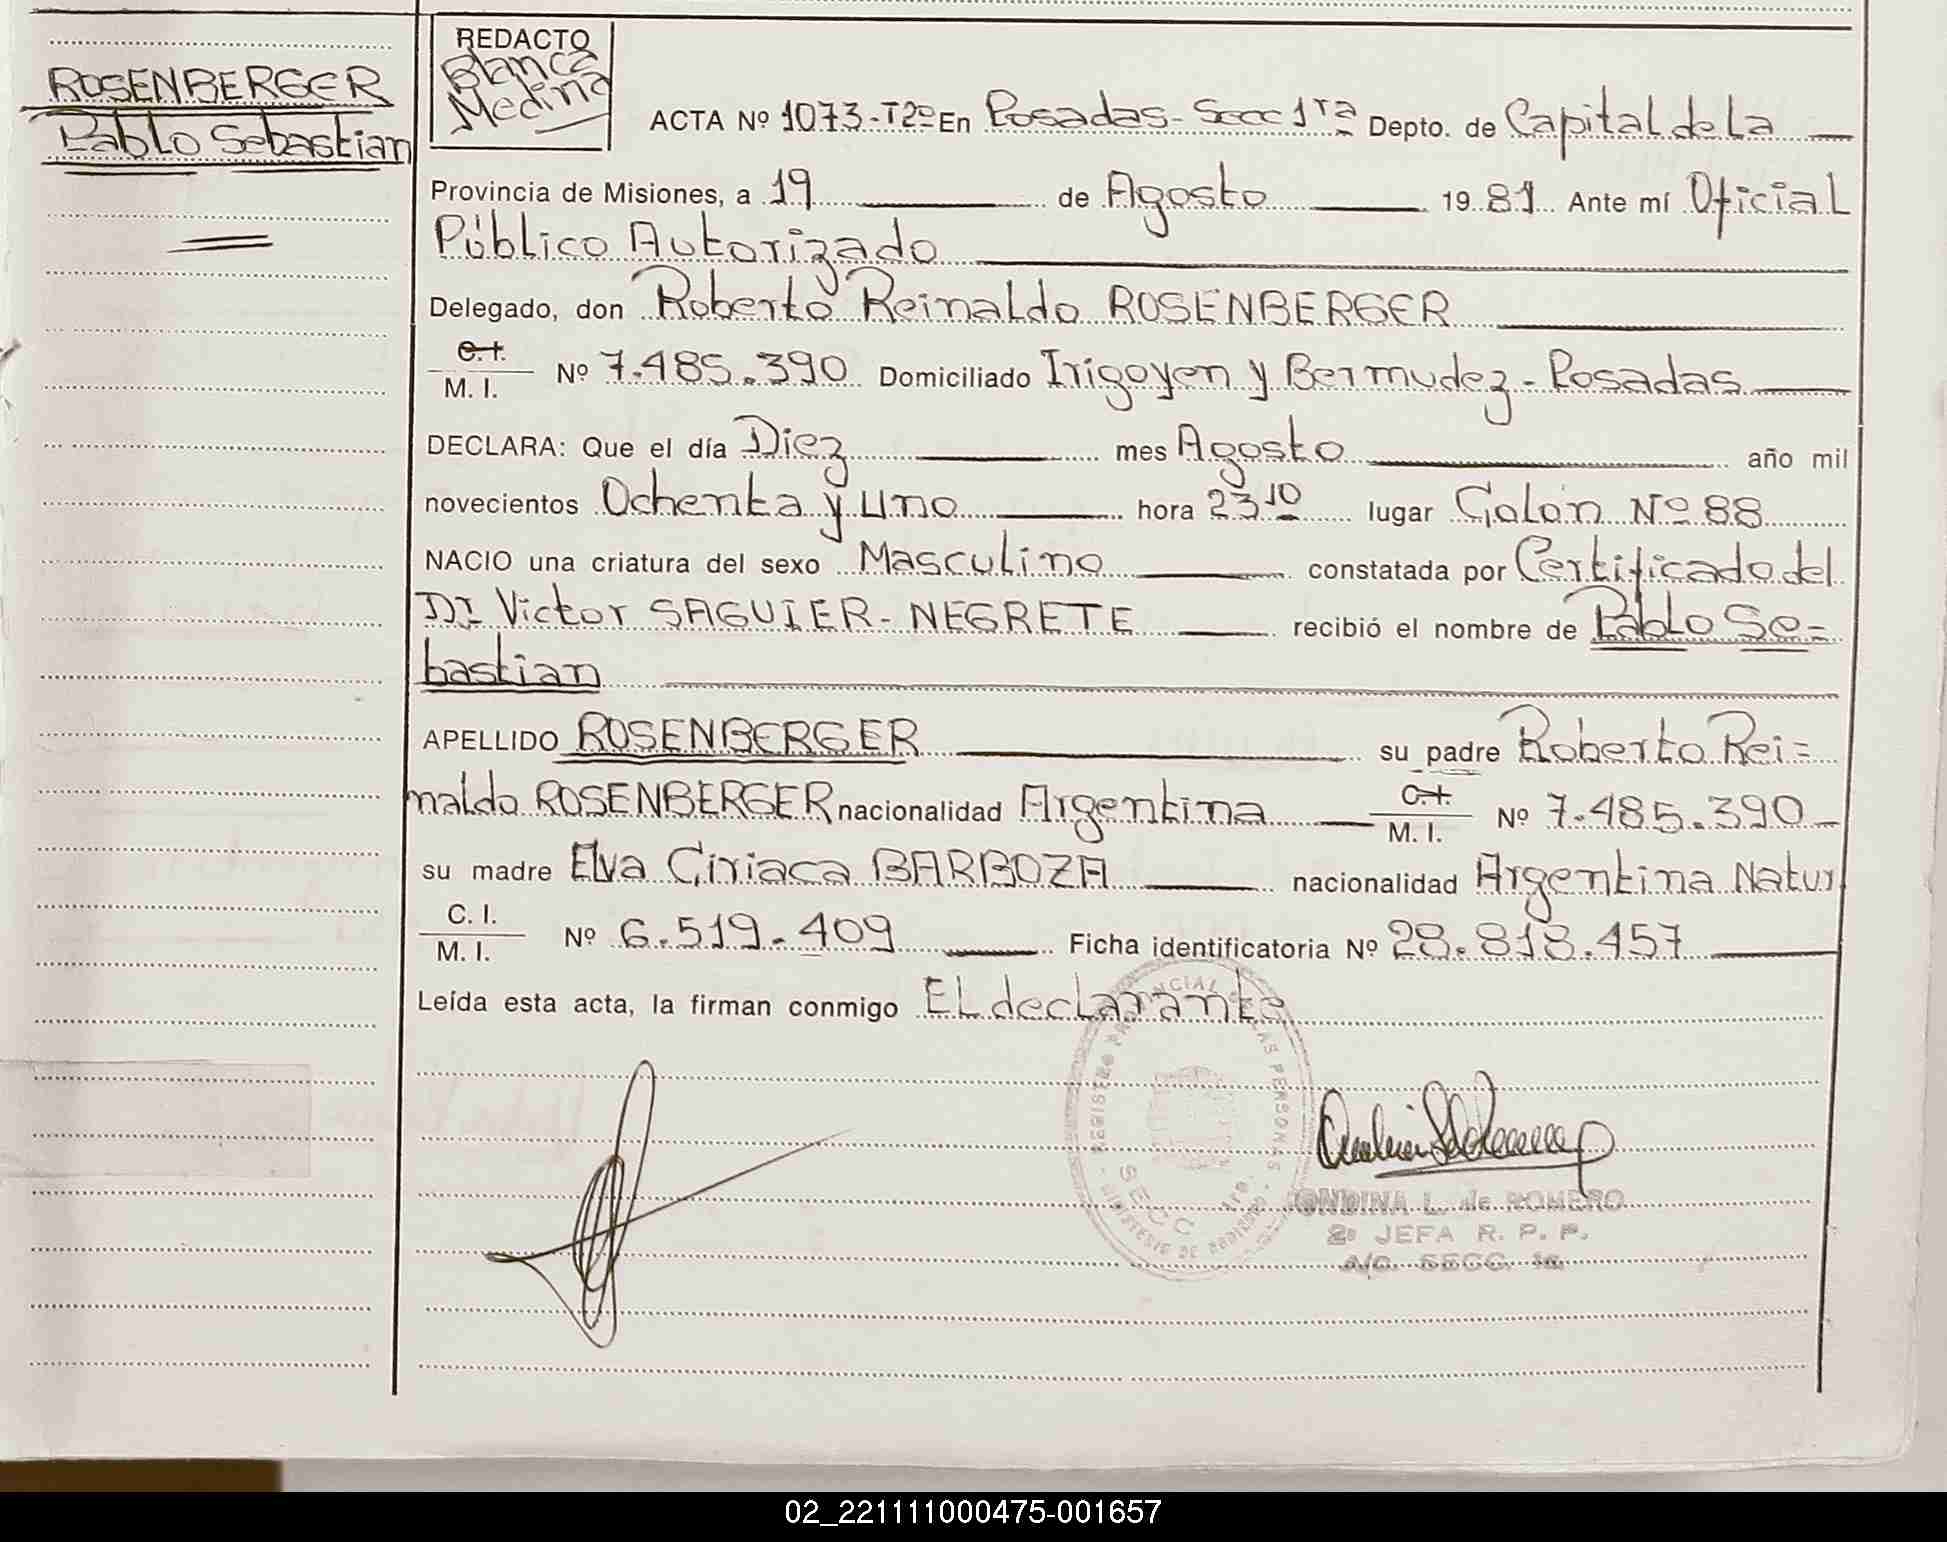 ROSENBERGER
Pablo Sebastian
REDACTO
Blanca
Medina
ACTA Nº 1073-T2º En Posadas - Secc 1ra Depto. de Capital de La
Provincia de Misiones, a 19 de Agosto 1981 Ante mí Oficial
Público Autorizado
Delegado, don Roberto Reinaldo ROSENBERGER
C. I.
M. I. Nº 7.485.390 Domiciliado Irigoyen y Bermudez - Posadas
DECLARA: Que el día Diez mes Agosto año mil
novecientos Ochenta y Uno hora 23 10 lugar Colón Nº 88
NACIO una criatura del sexo Masculino constatada por Certificado del
Dr Victor SAGUIER - NEGRETE recibió el nombre de Pablo Se-
bastian
APELLIDO ROSENBERGER su padre Roberto Rei=
naldo ROSENBERGER nacionalidad Argentina C. I. M. I. Nº 7.485.390
su madre Elva Ciriaca BARBOZA nacionalidad Argentina Natur
C. I.
M. I. Nº 6.519.409 Ficha identificatoria Nº 28.818.457
Leída esta acta, la firman conmigo El declarante
REGISTRO PROVINCIAL DE LAS PERSONAS
SECC 1ra.
MINISTERIO DE GOBIERNO
ONDINA L. de ROMERO
2º JEFA R. P. P.
A/C. SECC. 1a.
02_221111000475-001657